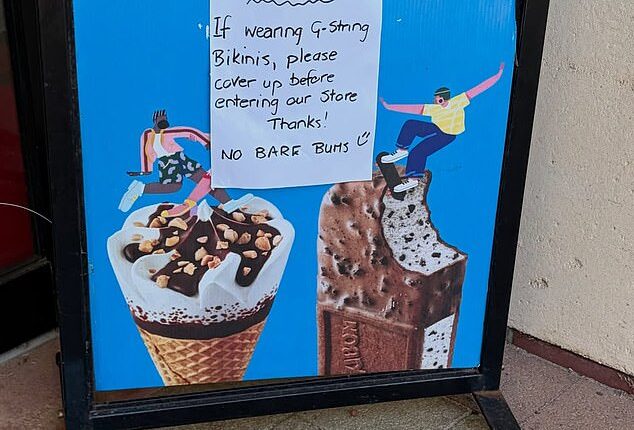 If wearing G-String
Bikinis, please
cover up before
entering our Store
Thanks!
NO BARE BUMS ☺